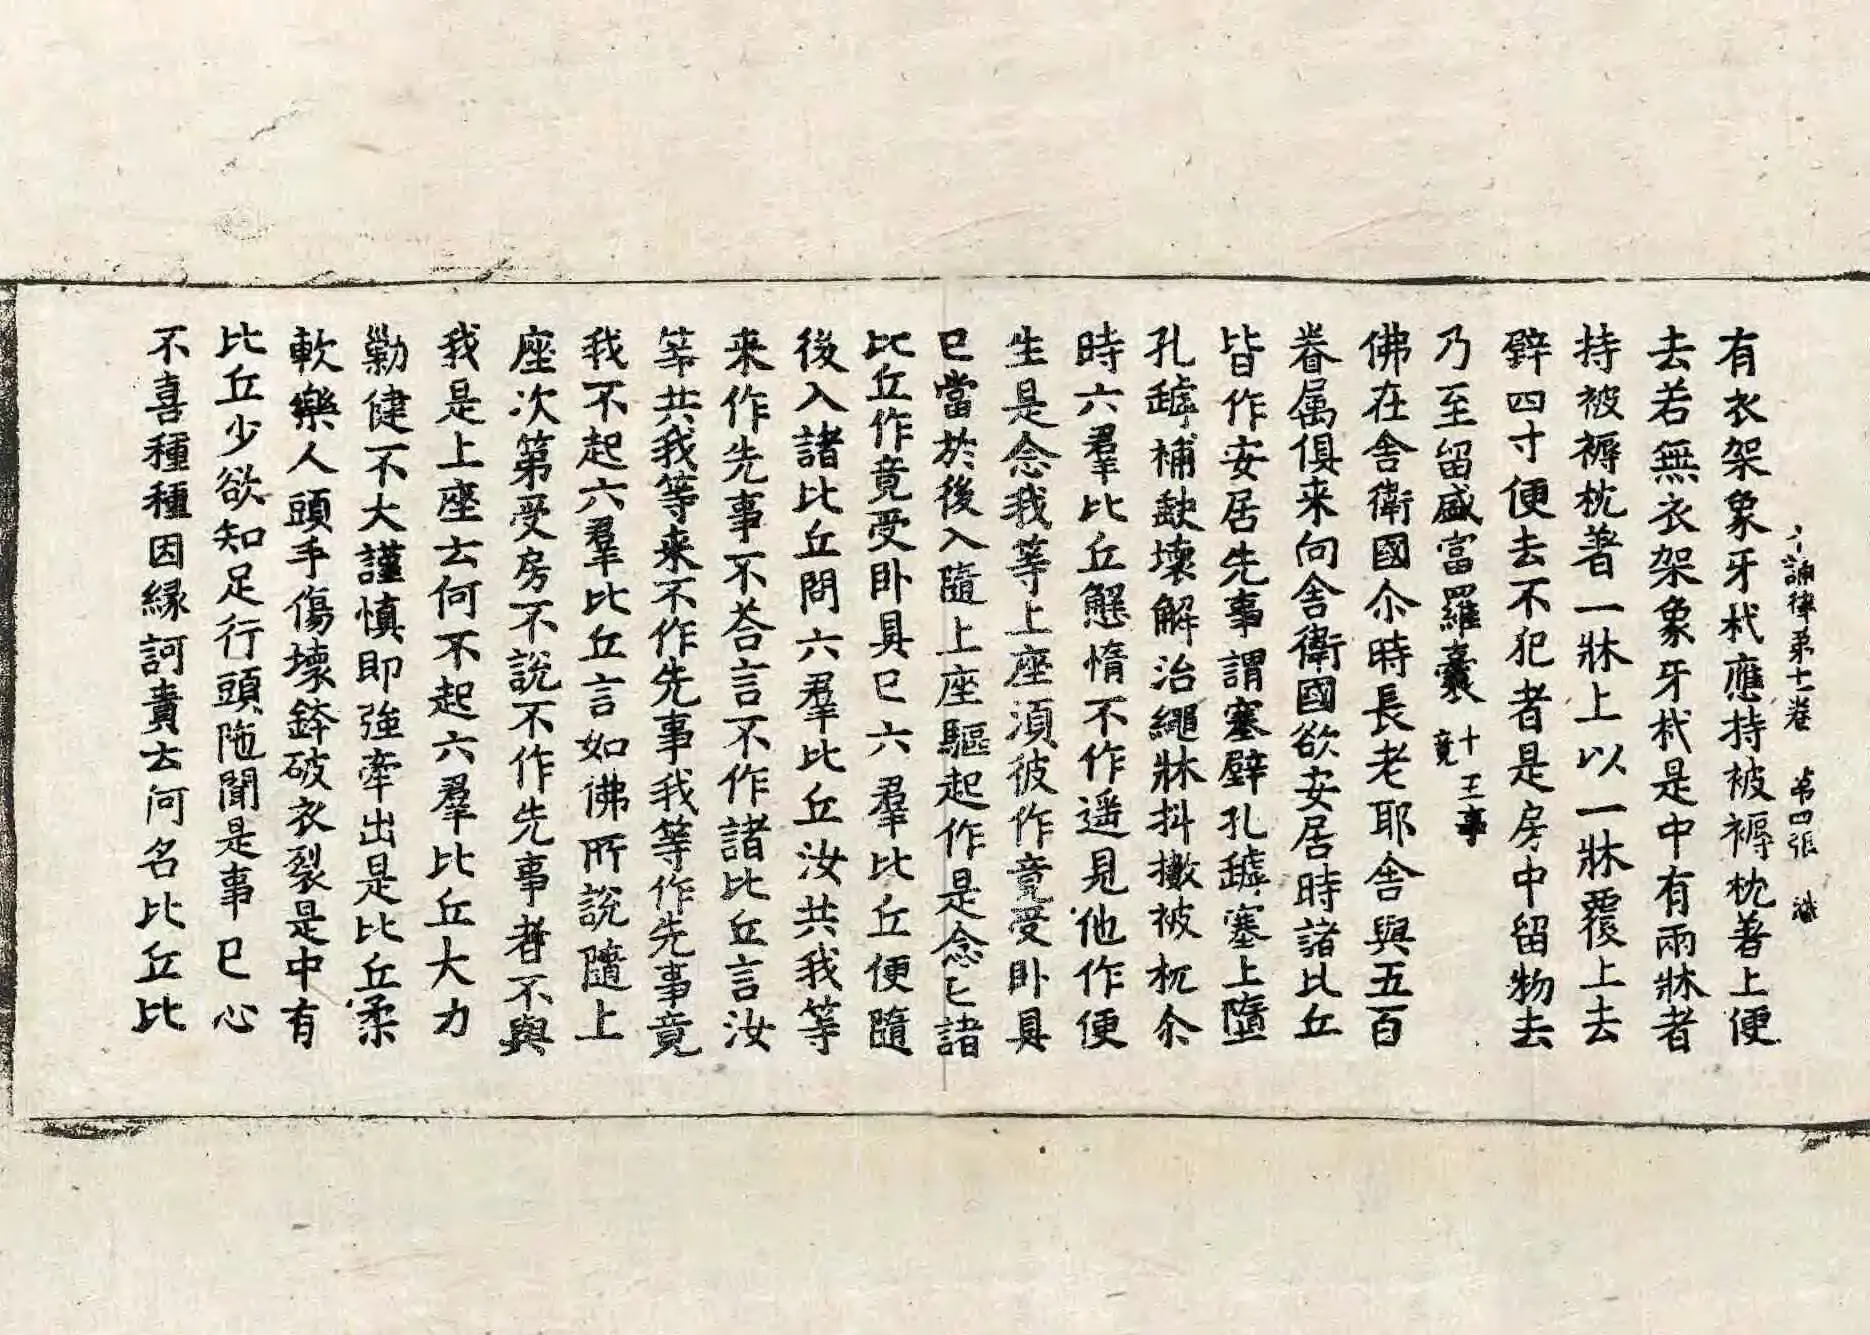 十誦律第十一卷 第四張
有衣架象牙杙應持被褥枕著上便
去若無衣架象牙杙是中有兩牀者
持被褥枕著一牀上以一牀覆上去
壁四寸便去不犯者是房中留物去
乃至留盛富羅囊 十五事竟
佛在舍衛國尒時長老耶舍與五百
眷属俱来向舍衛國欲安居時諸比丘
皆作安居先事謂塞壁孔罅塞上墮
孔罅補缺壞解治繩牀抖擻被枕尒
時六羣比丘懈惰不作遥見他作便
生是念我等上座須彼作竟受卧具
已當於後入隨上座驅起作是念已諸
比丘作竟受卧具已六羣比丘便隨
後入諸比丘問六羣比丘汝共我等
来作先事不荅言不作諸比丘言汝
等共我等来不作先事我等作先事竟
我不起六羣比丘言如佛所說隨上
座次第受房不說不作先事者不與
我是上座去何不起六羣比丘大力
勦健不大謹慎即強牽出是比丘柔
軟樂人頭手傷壞鉢破衣裂是中有
比丘少欲知足行頭陁聞是事已心
不喜種種因縁訶責去何名比丘比